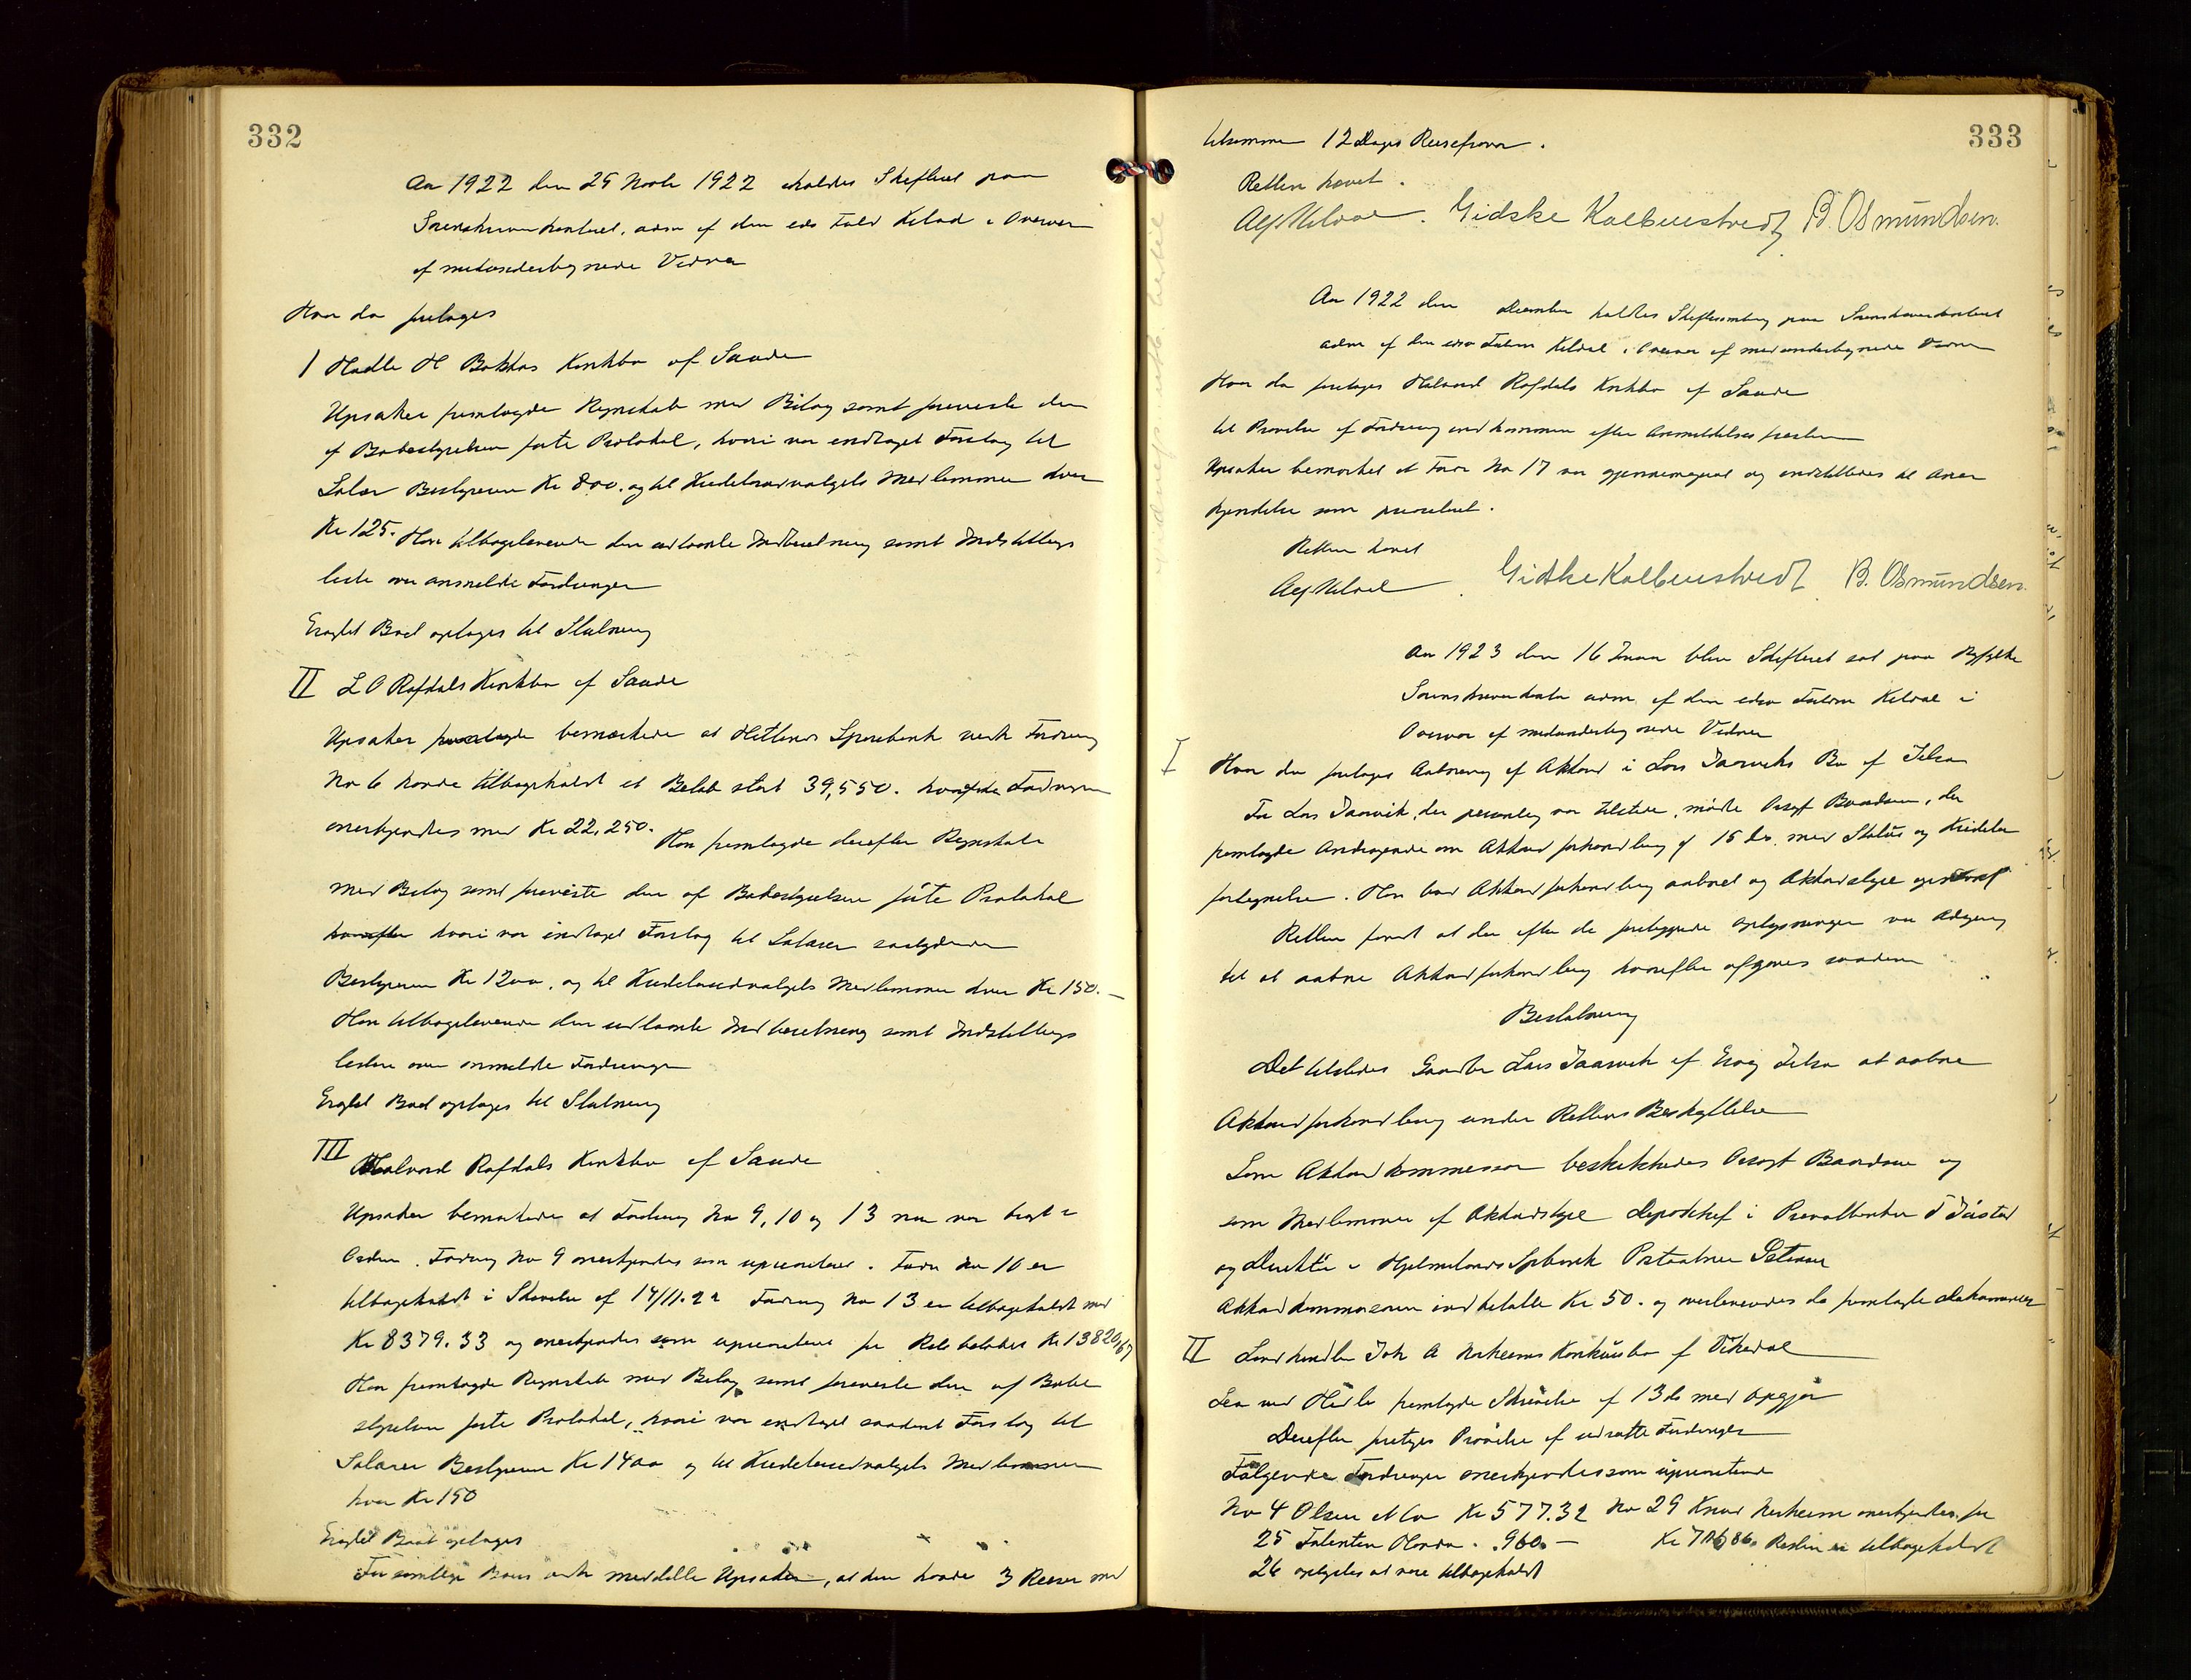 332
Aar 1922 den 29 Novbr 1922 holdtes Skifteret paa
Sorenskriverkontoret, adm af den edsv Fuldm Kildal i Overvær
af medundertegnede Vidner
Hvor da foretoges
I Hadle H Bakkas Konkbo af Saude
Upsaker fremlagde Regnskab med Bilag samt foreviste den
af Bobestyrelsen førte Protokol, hvori var indtaget Forslag til
Salær Bestyreren Kr 800. og til Kreditorudvalgets Medlemmer hver
Kr 125. Han tilbageleverede den udlaante Indberetning samt Indstillings
liste over anmeldte Fordringer
Eragtet Boet optages til Slutning
II L O Rafdals Konkbo af Saude
Upsaker bemærkede at Hetlands Sparebank verk Fordring
No 6 havde tilbageholdt et Beløb stort 39,550. hvorefter Fordringen
anerkjendtes med Kr 22,250. Han fremlagde derefter Regnskab
med Bilag samt foreviste den af Bobestyrelsen førte Protokol
hvorefter hvori var indtaget Forslag til Salærer saalydende
Bestyreren Kr 1200, og til Kreditorudvalgets Medlemmer hver Kr 150.—
Han tilbageleverede den udlaante Indberetning samt Indstillings
listen over anmeldte Fordringer
Eragtet Boet optages til Slutning
III Halvard Rafdals Konkbo af Saude
Upsaker bemærkede at Fordring No 9, 10 og 13 nu var bragt i
Orden. Fordring No 9 anerkjendtes som uprioriteret. Fordr No 10 er
tilbagekaldt i Skrivelse af 14/11.22 Fordring No 13 er tilbagekaldt med
Kr 8379.33 og anerkjendes som uprioriteret for Restbeløbet Kr 13820,67
Han fremlagde Regnskab med Bilag samt foreviste den af Bobe
styrelsen førte Protokol, hvori var indtaget saadant Forslag til
Salærer Bestyreren Kr 1400 og til Kreditorudvalgets Medlemmer
hver Kr 150
Eragtet Boet optages
For samtlige Boers verk meddelte Upsaker, at den havde 3 Reiser med
333
tilsammen 12 Dages Reisefravær.
Retten hævet.
Alf Kildal. Gidske Kolbenstvedt B. Osmundsen.
Aar 1922 den December holdtes Skiftesamling paa Sorenskriverkontoret
adm af den edsv Fuldm Kildal i Overvær af medundertegnede Vidner
Hvor da foretoges Halvard Rafdals Konkbo af Saude
til Prøvelse af Fordring indkommen efter Anmeldelsesfristen
Upsaker bemærket at Fordr No 17 var gjennemgaaet og indstilledes til Aner
kjendelse som prioriteret.
Retten hævet
Alf Kildal. Gidske Kolbenstvedt B. Osmundsen.
Aar 1923 den 16 Januar blev Skifteret sat paa Ryfylke
Sorenskriverkontor adm af den edsv Fuldm Kildal i
Overvær af medundertegnede Vidner
I Hvor da foretoges Aabning af Akkord i Lars Jaarviks Bo af Jelsa
For Lars Jaarvik, der personlig var tilstede, mødte Ovsagf Baardsen, der
fremlagde Andragende om Akkordforhandling af 15 ds. med Status og Kreditor
fortegnelse. Han bad Akkordforhandling aabnet og Akkordstyre opnævnt
Retten fandt at der efter de foreliggende Oplysninger var Adgang
til at aabne Akkordforhandling hvorefter afgaves saadan
Beslutning
Det tillades Gaardbr Lars Jaarvik af Jelsa at aabne
Akkordforhandling under Rettens Beskyttelse
Som Akkordkommissær beskikkedes Ovsagf Baardsen og
som Medlemmer af Akkordstyre Depotchef i Privatbanken T Tustad
og Direktør i Hjelmelands Spbank Postaabner
Akkordkommissæren indbetalte Kr 50. og overleveredes de fremlagte Dokumenter
II Landhandler Joh A Nerheims Konkursbo af Vikedal
fremlagde Skrivelse af 13 ds med Opgjør
Derefter foretoges Prøvelse af udsatte Fordringer
Følgende Fordringer anerkjendtes som uprioriterede
No 4 Olsen & Co Kr 577.32 No 29 Knud Nerheim anerkjendes for
25 Talenten Horda . 960.— Kr 706,86. Resten er tilbagekaldt
26 oplystes at være tilbagekaldt